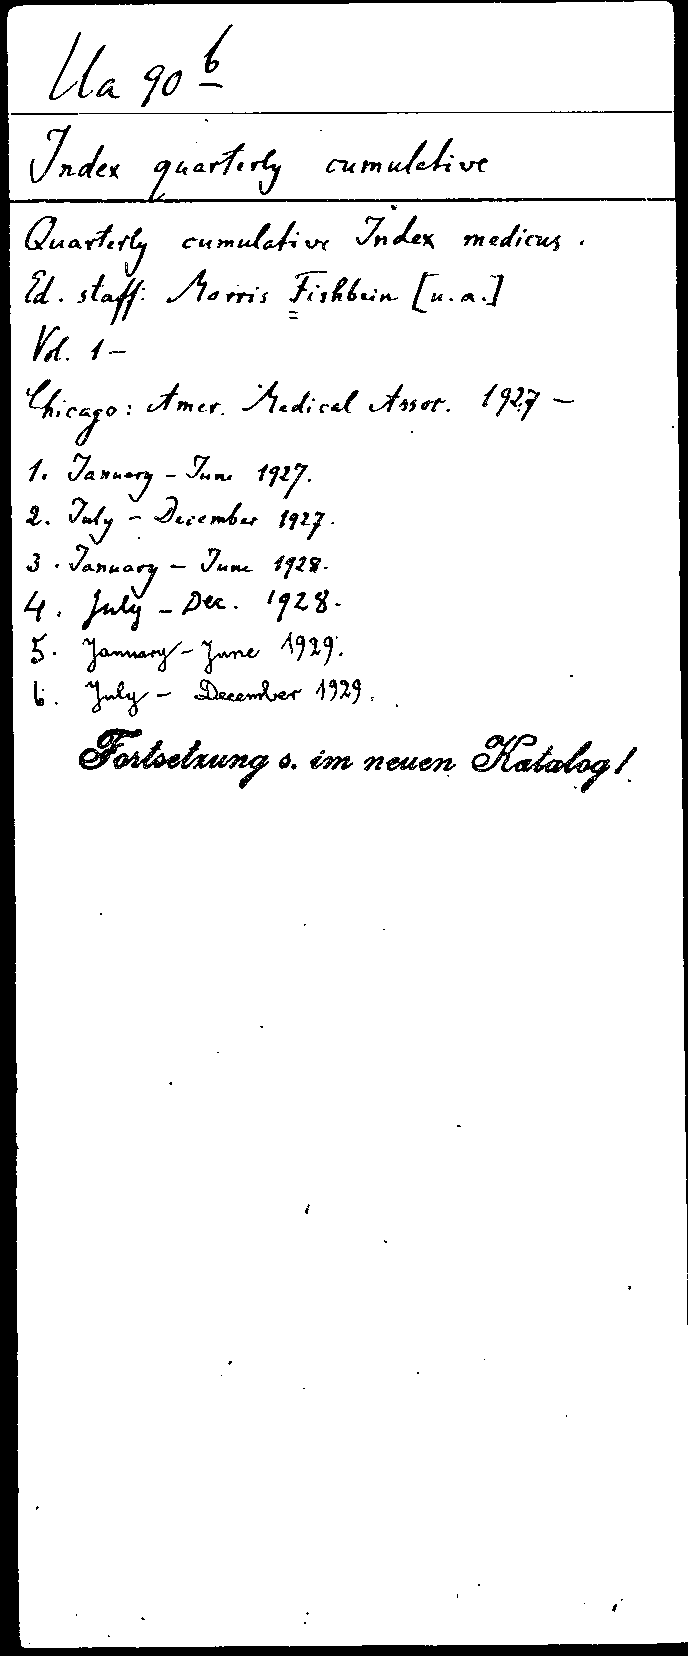 Ua 90 b
Index quarterly cumulative
Quarterly cumulative Index medicus.
Ed. staff: Morris Fishbein [u. a.]
Vol. 1 –
Chicago: Amer. Medical Assoc. 1927 –
1. January – June 1927.
2. July – December 1927.
3. January – June 1928.
4. July – Dec. 1928.
5. January – June 1929.
6. July – December 1929.
Fortsetzung s. im neuen Katalog!